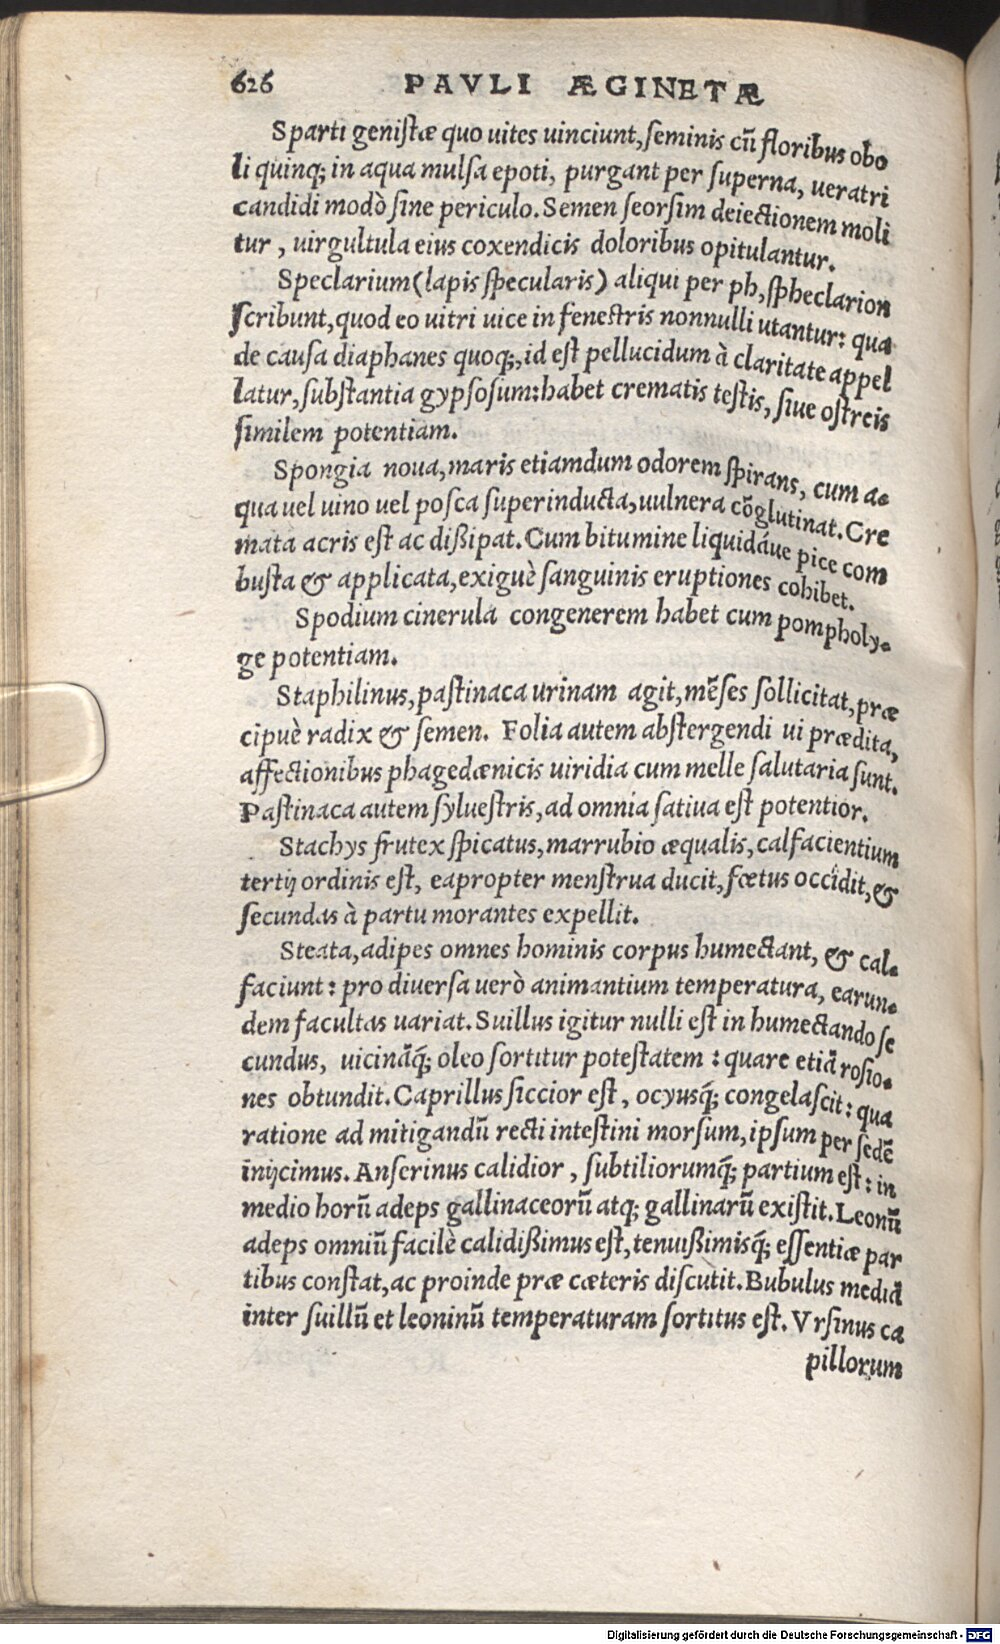 626 PAVLI ÆGINETÆ
Sparti genistæ quo uites uinciunt, seminis cũ floribus obo
li quinq; in aqua mulsa epoti, purgant per superna, ueratri
candidi modò sine periculo. Semen seorsim deiectionem moli
tur, uirgultula eius coxendicis doloribus opitulantur.
Speclarium (lapis specularis) aliqui per ph, spheclarion
scribunt, quod eo uitri uice in fenestris nonnulli utantur: qua
de causa diaphanes quoq;, id est pellucidum à claritate appel
latur, substantia gypsosum: habet crematis testis, siue ostreis
similem potentiam.
Spongia noua, maris etiamdum odorem spirans, cum a-
qua uel uino uel posca superinducta, uulnera cõglutinat. Cre
mata acris est ac dißipat. Cum bitumine liquidáue pice com
busta & applicata, exiguè sanguinis eruptiones cohibet.
Spodium cinerula congenerem habet cum pompholy-
ge potentiam.
Staphilinus, pastinaca urinam agit, mẽses sollicitat, præ
cipuè radix & semen. Folia autem abstergendi ui prædita,
affectionibus phagedænicis uiridia cum melle salutaria sunt.
Pastinaca autem syluestris, ad omnia satiua est potentior.
Stachys frutex spicatus, marrubio æqualis, calfacientium
tertij ordinis est, eapropter menstrua ducit, fœtus occidit, &
secundas à partu morantes expellit.
Steata, adipes omnes hominis corpus humectant, & cal-
faciunt: pro diuersa uerò animantium temperatura, earun-
dem facultas uariat. Suillus igitur nulli est in humectando se
cundus, uicinãq́; oleo sortitur potestatem: quare etiã rosio-
nes obtundit. Caprillus siccior est, ocyusq́; congelascit: qua
ratione ad mitigandũ recti intestini morsum, ipsum per sedẽ
inijcimus. Anserinus calidior, subtiliorumq́; partium est: in
medio horũ adeps gallinaceorũ atq; gallinarũ existit. Leonũ
adeps omniũ facilè calidißimus est, tenuißimisq́; essentiæ par
tibus constat, ac proinde præ cæteris discutit. Bubulus mediã
inter suillũ et leoninũ temperaturam sortitus est. Vrsinus ca
pillorum
Digitalisierung gefördert durch die Deutsche Forschungsgemeinschaft - DFG